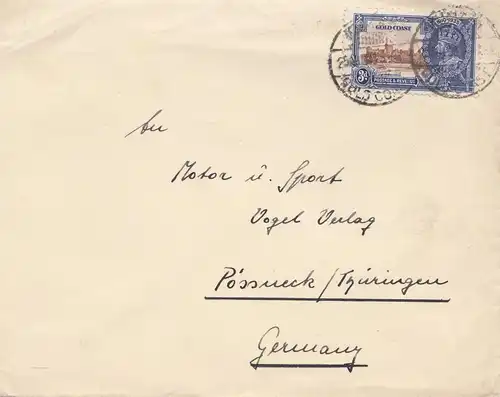 GOLD COAST
3D
POSTAGE & REVENUE
GOLD COAST
An
Motor u. Sport
Vogel Verlag
Pössneck/Thüringen
Germany